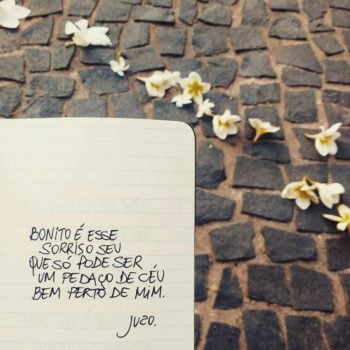 BONITO É ESSE
SORRISO SEU
QUE SÓ PODE SER
UM PEDAÇO DE CÉU
BEM PERTO DE MIM.
JUZO.